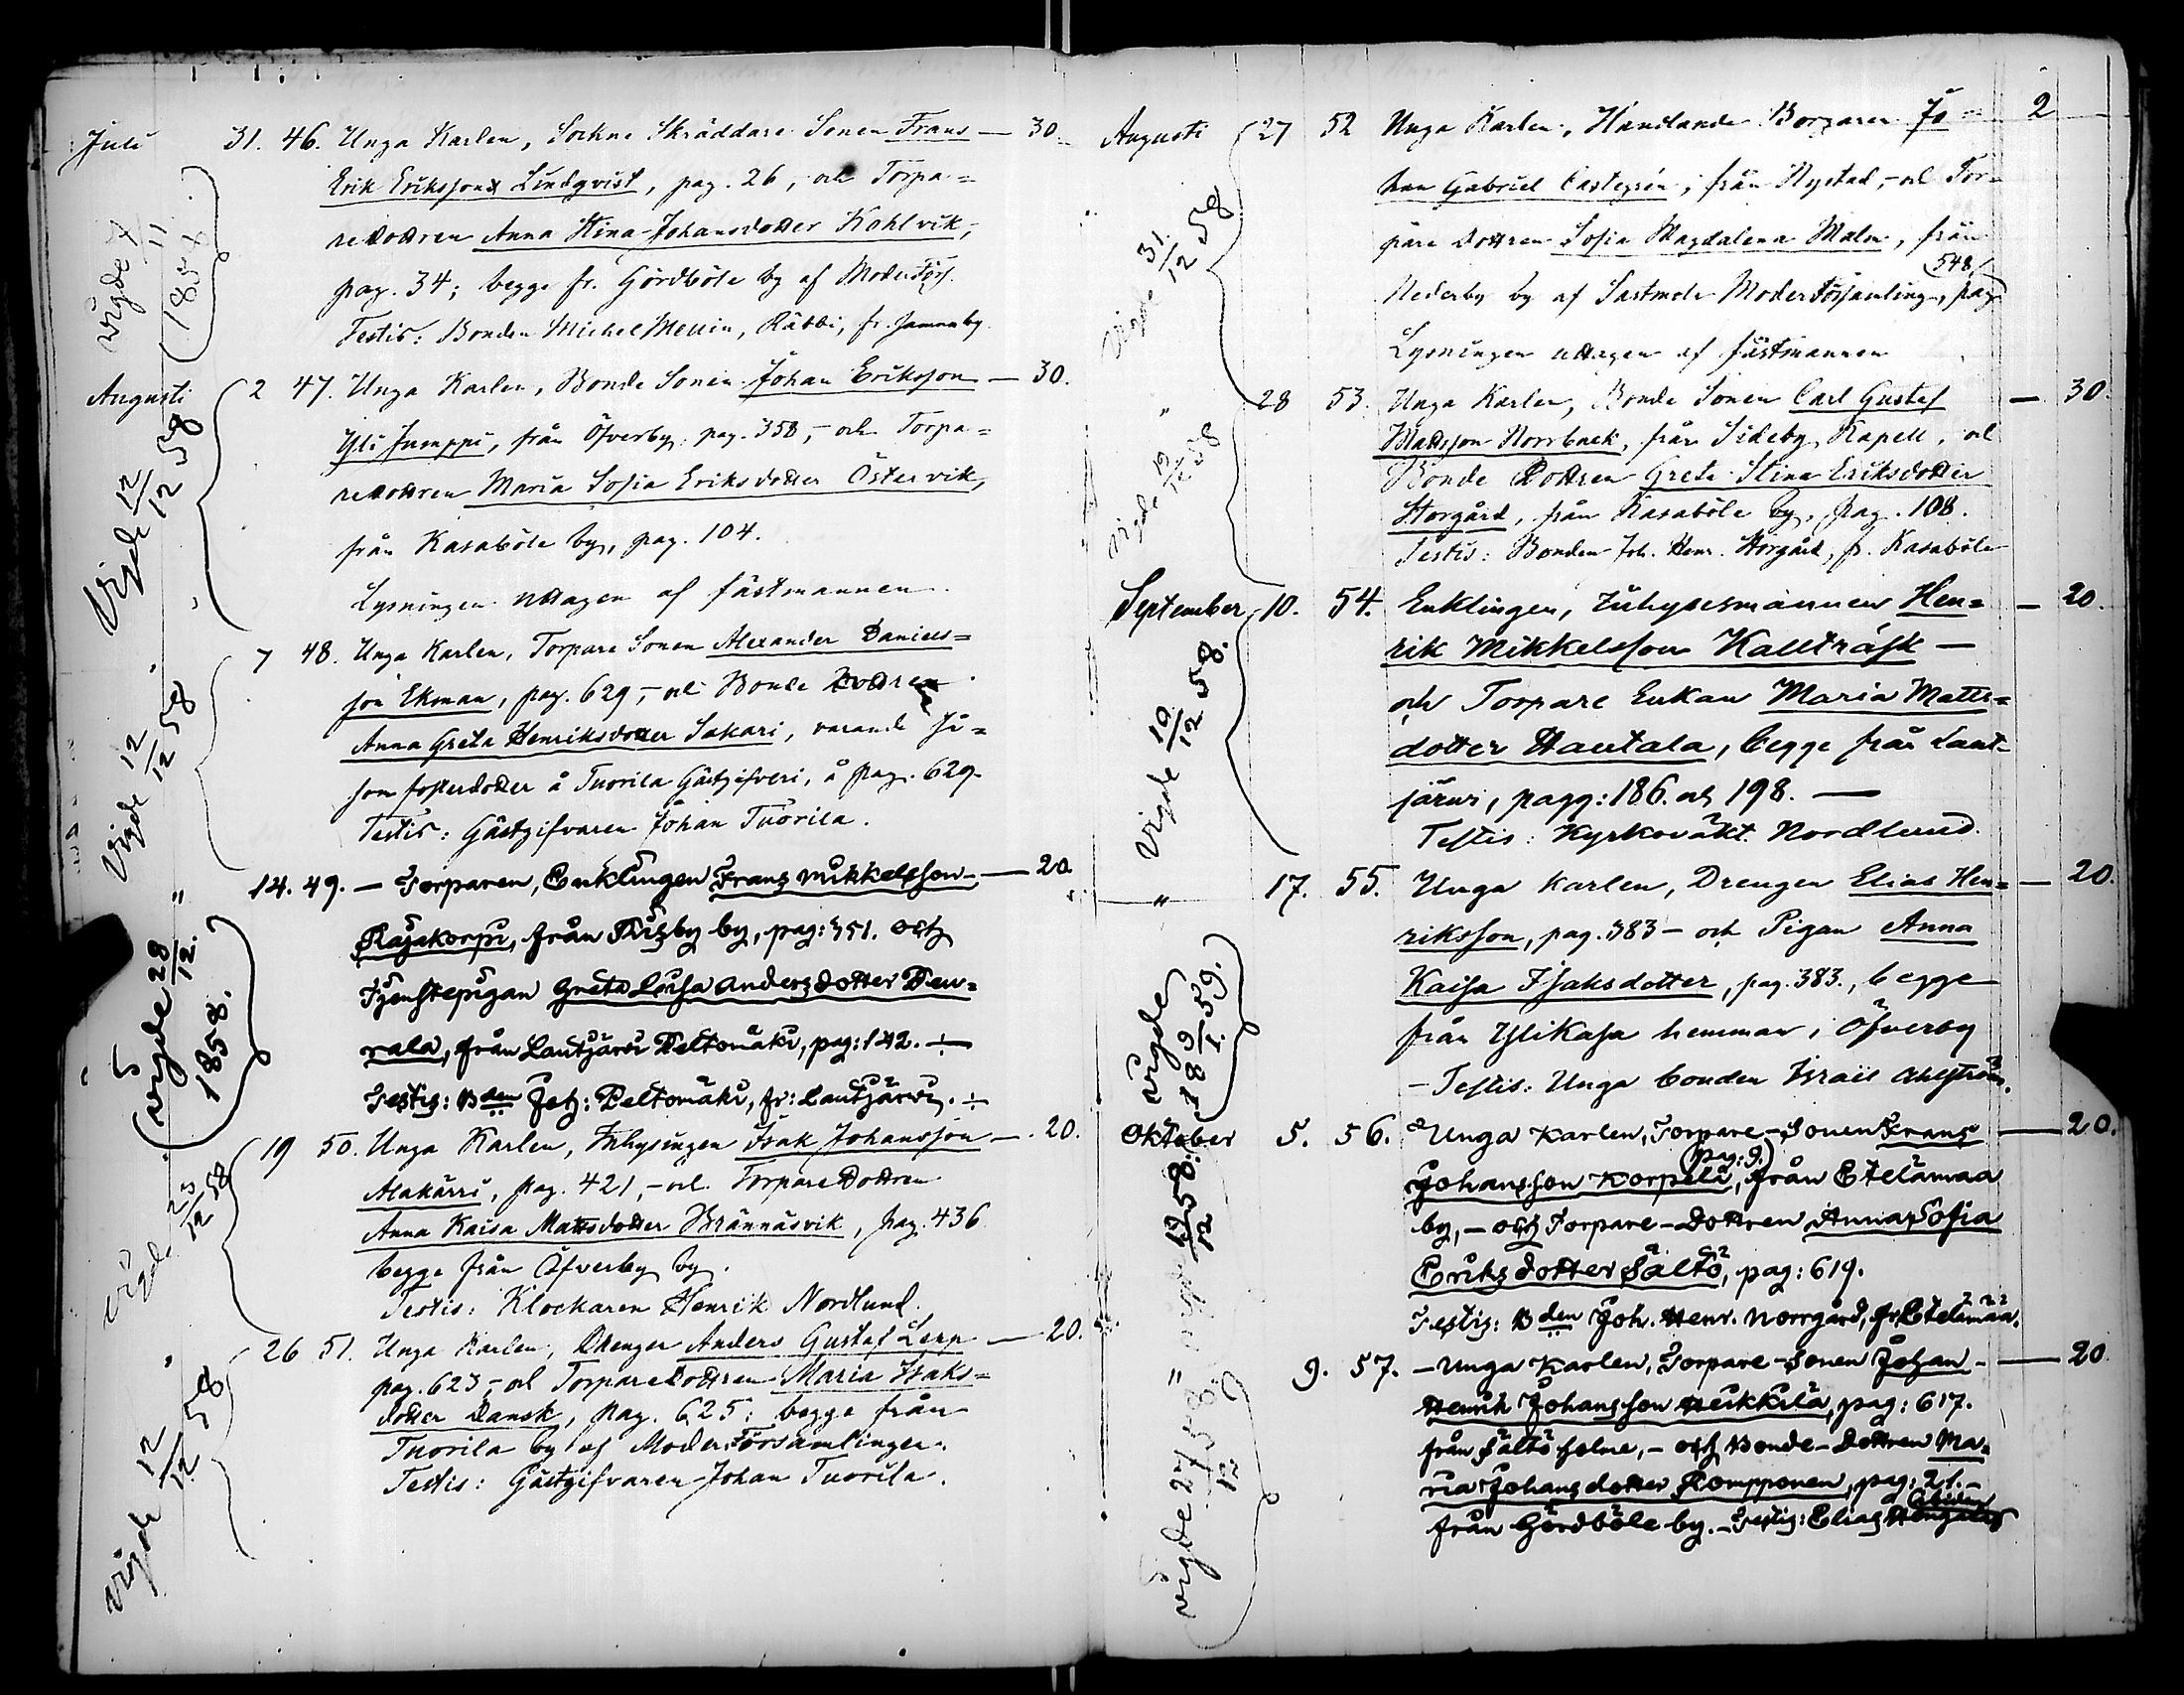 Juli 31. 46. Unga Karlen, Sockne Skräddare Sonen Frans — 30.
Erik Eriksson Lindqvist, pag. 26, och Torpa=
redottren Anna Stina Johansdotter Kohlvik,
pag. 34; begge fr. Gördböle by af ModerFörs.
Testis: Bonden Michel Mellin, Räbbi, fr.
vigde 7/11 1857
Augusti 2 47. Unga Karlen, Bonde Sonen Johan Eriksson — 30.
Yli Jumppi, från Öfverby pag. 358, och Torpa=
redottren Maria Sofia Eriksdotter Östervik,
från Kasaböle by, pag. 104.
Lysningen uttagen af fästmannen.
Vigde 12/12 58
" 7 48. Unga Karlen, Torpare Sonen Alexander Daniels=
son Ekman, pag. 629, och Bonde Dottren
Anna Greta Henriksdotter Sakari, varande
som fosterdotter å Tuorila Gästgifveri, å pag. 629.
Testis: Gästgifvaren Johan Tuorila.
Vigde 12/12 58
" 14. 49. — Torparen, Enklingen Frans Mikkelsson — 20.
Rajakorpi, från by, pag: 351. och
Tjenstepigan Greta Lovisa Andersdotter
rala, från Lautjärvi Peltomäki, pag: 142. ÷
Testis: Bden Joh: Peltomäki, fr: Lautjärvi. ÷
vigde 28/12 1858.
19 50. Unga Karlen, Inhysingen Isak Johansson — 20.
Alakärri, pag. 421, och TorpareDottren
Anna Kaisa Mattsdotter Brännäsvik, pag. 436
begge från Öfverby by.
Testis: Klockaren Henrik Nordlund.
vigde 25/12 58
" 26 51. Unga Karlen, Drengen Anders Gustaf Lepp — 20.
pag. 623, och Torparedottren Maria Isaks=
dotter Dansk, pag. 625; begge från
Tuorila by af Moder Församlingen.
Testis: Gästgifvaren Johan Tuorila.
vigde 12/12 58
Augusti 27 52 Unga Karlen, Handlande Borgaren Jo= 2
han Gabriel Castegrén, från Nystad, och Tor=
pare dottren Sofia Magdalena Malm, från
548
Nederby by af Sastmola Moderförsamling, pag
Lysningen uttagen af fästmannen
vigde 31/12 58
" 28 53. Unga Karlen, Bonde Sonen Carl Gustaf — 30.
Mattsson Norrback, från Sideby Kapell, och
Bonde Dottren Greta Stina Eriksdotter
Storgård, från Kasaböle by, pag. 108.
Testis: Bonden Joh. Henr. Storgård, fr. Kasaböle
vigde 12/12 58
September 10. 54. Enklingen, Inhysesmannen Hen= — 20.
rik Mikkelsson Kallträsk —
och Torpare Enkan Maria Matts=
dotter Hautala, begge från Laut=
järvi, pagg: 186. och 198. —
Testis: Kyrkovakt. Nordlund.
Vigde 19/12 58.
" 17. 55. Unga Karlen, Drengen Elias Hen= — 20.
riksson, pag. 383 — och Pigan Anna
Kaisa Isaksdotter, pag. 383., begge
från Ylikasa hemman i Öfverby
— Testis: Unga bonden Israel Ahlström.
vigde 18 9/1. 59.
Oktober 5. 56. Unga Karlen, Torpare-Sonen Frans — 20.
(pag: 9.)
Johansson Korpelä, från Etelämaa
by, — och Torpare-Dottren Anna Sofia
Eriksdotter Sältö, pag: 619.
Testis: Bden Joh. Henr. Norrgård, fr. Etelämaa.
vigde 12/12 58.
" 9. 57. — Unga Karlen, Torpare-Sonen Johan — 20.
Henrik Johansson Heikkilä, pag: 617.
från Sältö holme, — och Bonde-Dottren Ma=
ria Johansdotter Rompponen, pag: 21. —
från Gördböle by. — Testis: Elias
vigde 27/12 58